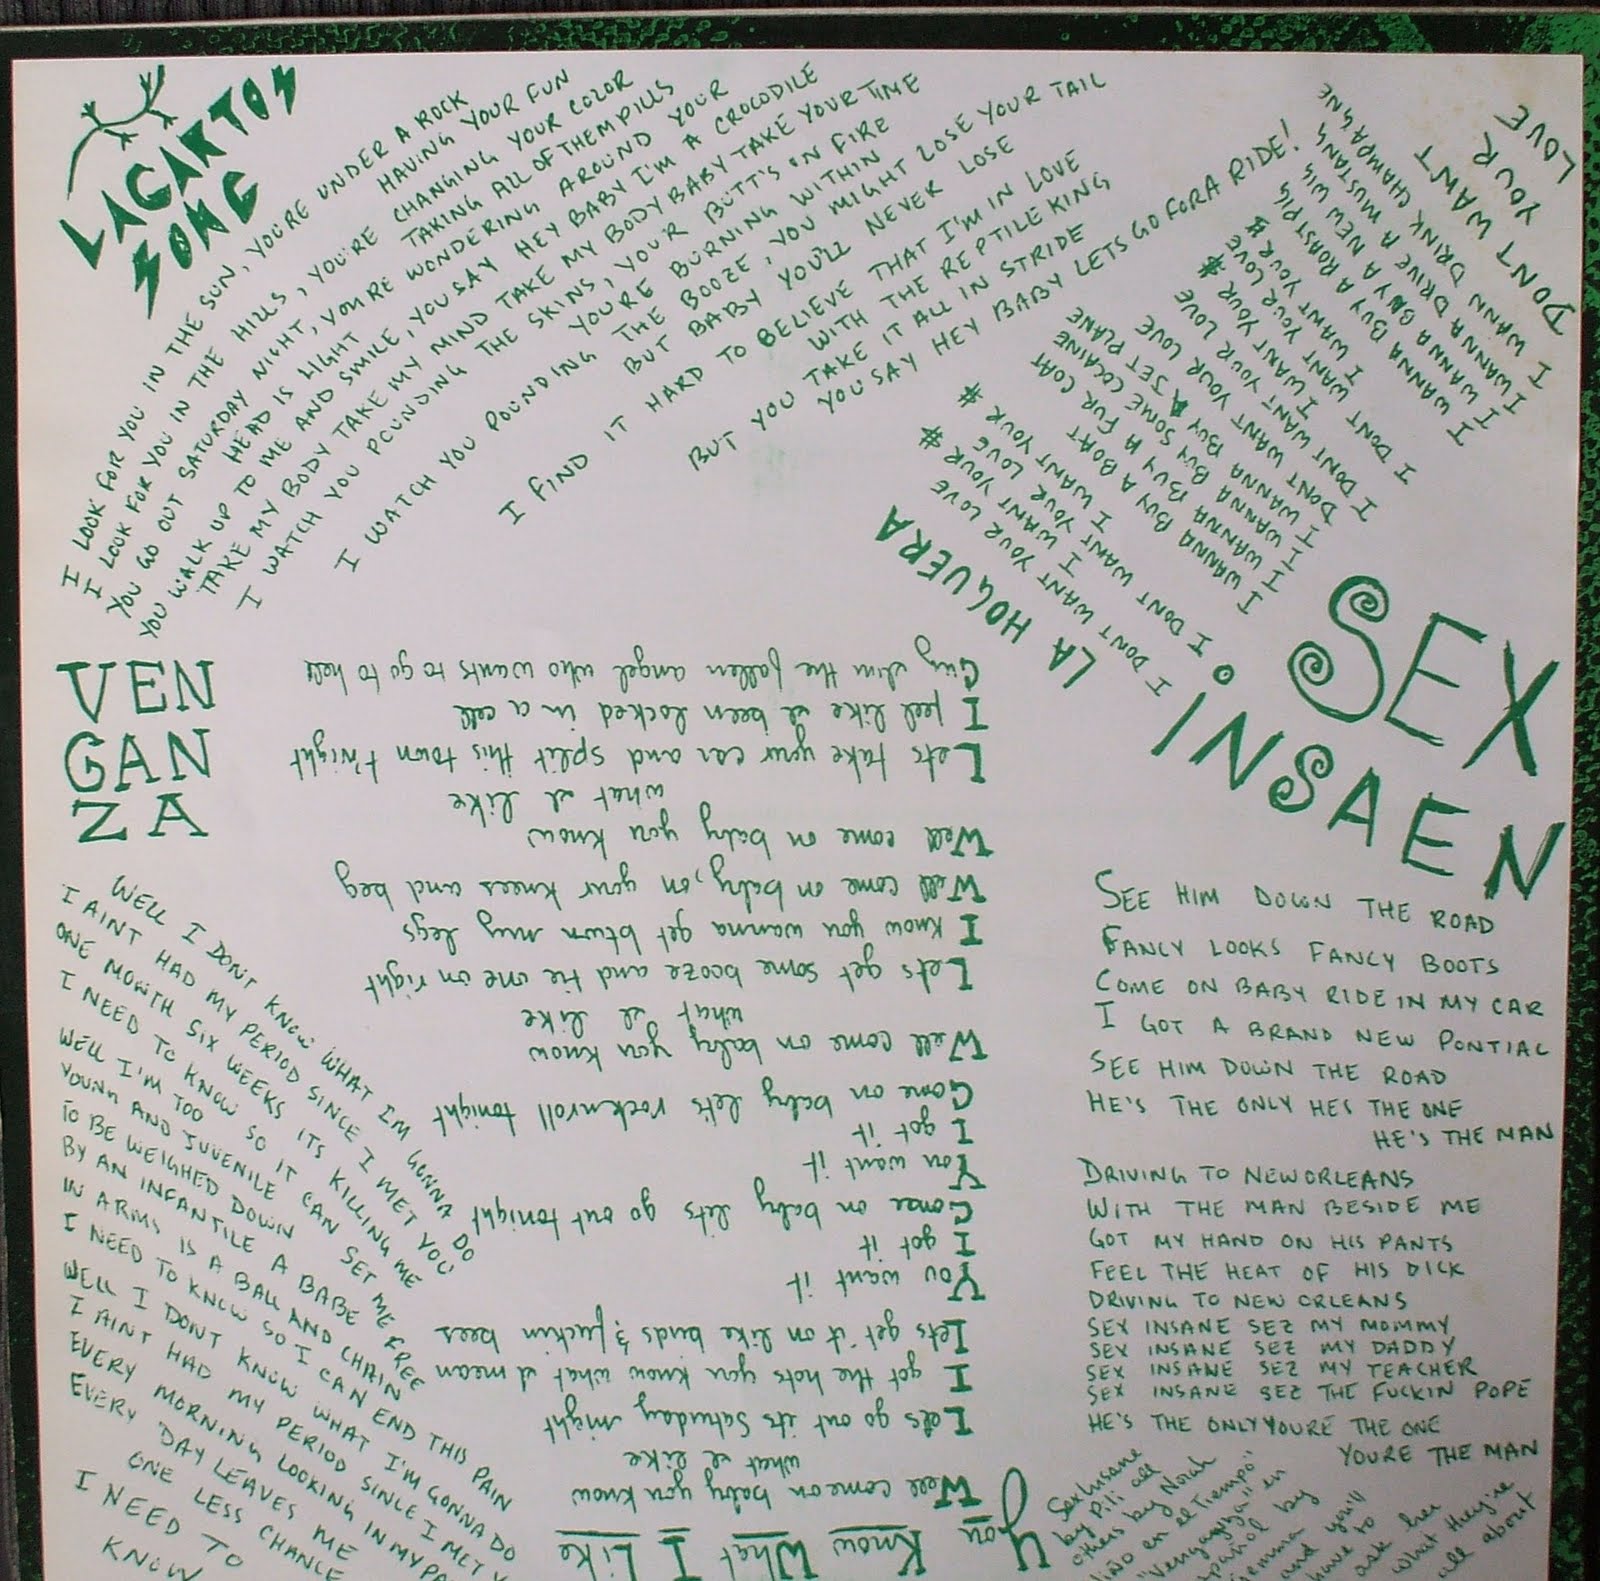 LAGARTOS
SONG
I LOOK FOR YOU IN THE SUN, YOU'RE UNDER A ROCK
HAVING YOUR FUN
I LOOK FOR YOU IN THE HILLS, YOU'RE CHANGING YOUR COLOR
TAKING ALL OF THEM PILLS
YOU GO OUT SATURDAY NIGHT, YOU'RE WONDERING AROUND YOUR
HEAD IS LIGHT
YOU WALK UP TO ME AND SMILE, YOU SAY HEY BABY I'M A CROCODILE
TAKE MY BODY TAKE MY MIND TAKE MY BODY BABY TAKE YOUR TIME
I WATCH YOU POUNDING THE SKINS, YOUR BUTT'S ON FIRE
YOU'RE BURNING WITHIN
I WATCH YOU POUNDING THE BOOZE, YOU MIGHT LOSE YOUR TAIL
BUT BABY YOU'LL NEVER LOSE
I FIND IT HARD TO BELIEVE THAT I'M IN LOVE
WITH THE REPTILE KING
BUT YOU TAKE IT ALL IN STRIDE
YOU SAY HEY BABY LETS GO FOR A RIDE!
DONT WANT
YOUR
LOVE
I WANNA BUY A ROAST PIG
I WANNA BUY A NEW WIG
I WANNA DRIVE A MUSTANG
I WANN DRINK CHAMPAGNE
I DONT WANT YOUR LOVE
I WANT YOUR #
I DONT WANT YOUR LOVE
I WANT YOUR #
I DONT WANT YOUR LOVE
I DONT WANT YOUR LOVE
I WANNA BUY A JET PLANE
I WANNA BUY SOME COCAINE
I WANNA BUY A FUR COAT
I WANNA BUY A BOAT
I DONT WANT YOUR LOVE
I WANT YOUR #
I DONT WANT YOUR LOVE
I WANT YOUR #
LA HOGUERA
SEX
INSAEN
SEE HIM DOWN THE ROAD
FANCY LOOKS FANCY BOOTS
COME ON BABY RIDE IN MY CAR
I GOT A BRAND NEW PONTIAC
SEE HIM DOWN THE ROAD
HE'S THE ONLY HES THE ONE
HE'S THE MAN
DRIVING TO NEWORLEANS
WITH THE MAN BESIDE ME
GOT MY HAND ON HIS PANTS
FEEL THE HEAT OF HIS DICK
DRIVING TO NEW ORLEANS
SEX INSANE SEZ MY MOMMY
SEX INSANE SEZ MY DADDY
SEX INSANE SEZ MY TEACHER
SEX INSANE SEZ THE FUCKIN POPE
HE'S THE ONLY YOURE THE ONE
YOURE THE MAN
Sex Insane
by Pili all
others by Norah
en el Tiempo"
"Venganza" in
by
gemma you'll
and
have to
ask her
what they're
all about
You Know What I Like
Well come on baby you know
what I like
Let's go out its Saturday night
I got the hots you know what I mean
Lets get it on like birds & fuckin bees
You want it
I got it
Come on baby lets go out tonight
You want it
I got it
Come on baby let's rocknroll tonight
Well come on baby you know
what I like
Lets get some booze and tie one on right
I know you wanna get btwn my legs
Well come on baby, on your knees and beg
Well come on baby you know
what I like
Lets take your car and split this town t'night
I feel like I been locked in a cell
Cuz I'm the fallen angel who wants to go to hell
VEN
GAN
ZA
WELL I DONT KNOW WHAT IM GONNA DO
I AINT HAD MY PERIOD SINCE I MET YOU
ONE MOWTH SIX WEEKS ITS KILLING ME
I NEED TO KNOW SO IT CAN SET ME FREE
WELL I'M TOO
YOUNG AND JUVENILE
TO BE WEIGHED DOWN
BY AN INFANTILE A BABE
IN ARMS IS A BALL AND CHAIN
I NEED TO KNOW SO I CAN END THIS PAIN
WELL I DONT KNOW WHAT I'M GONNA DO
I AINT HAD MY PERIOD SINCE I MET
EVERY MORNING LOOKING IN MY
EVERY DAY LEAVES ME
ONE LESS CHANCE
I NEED TO
KNOW